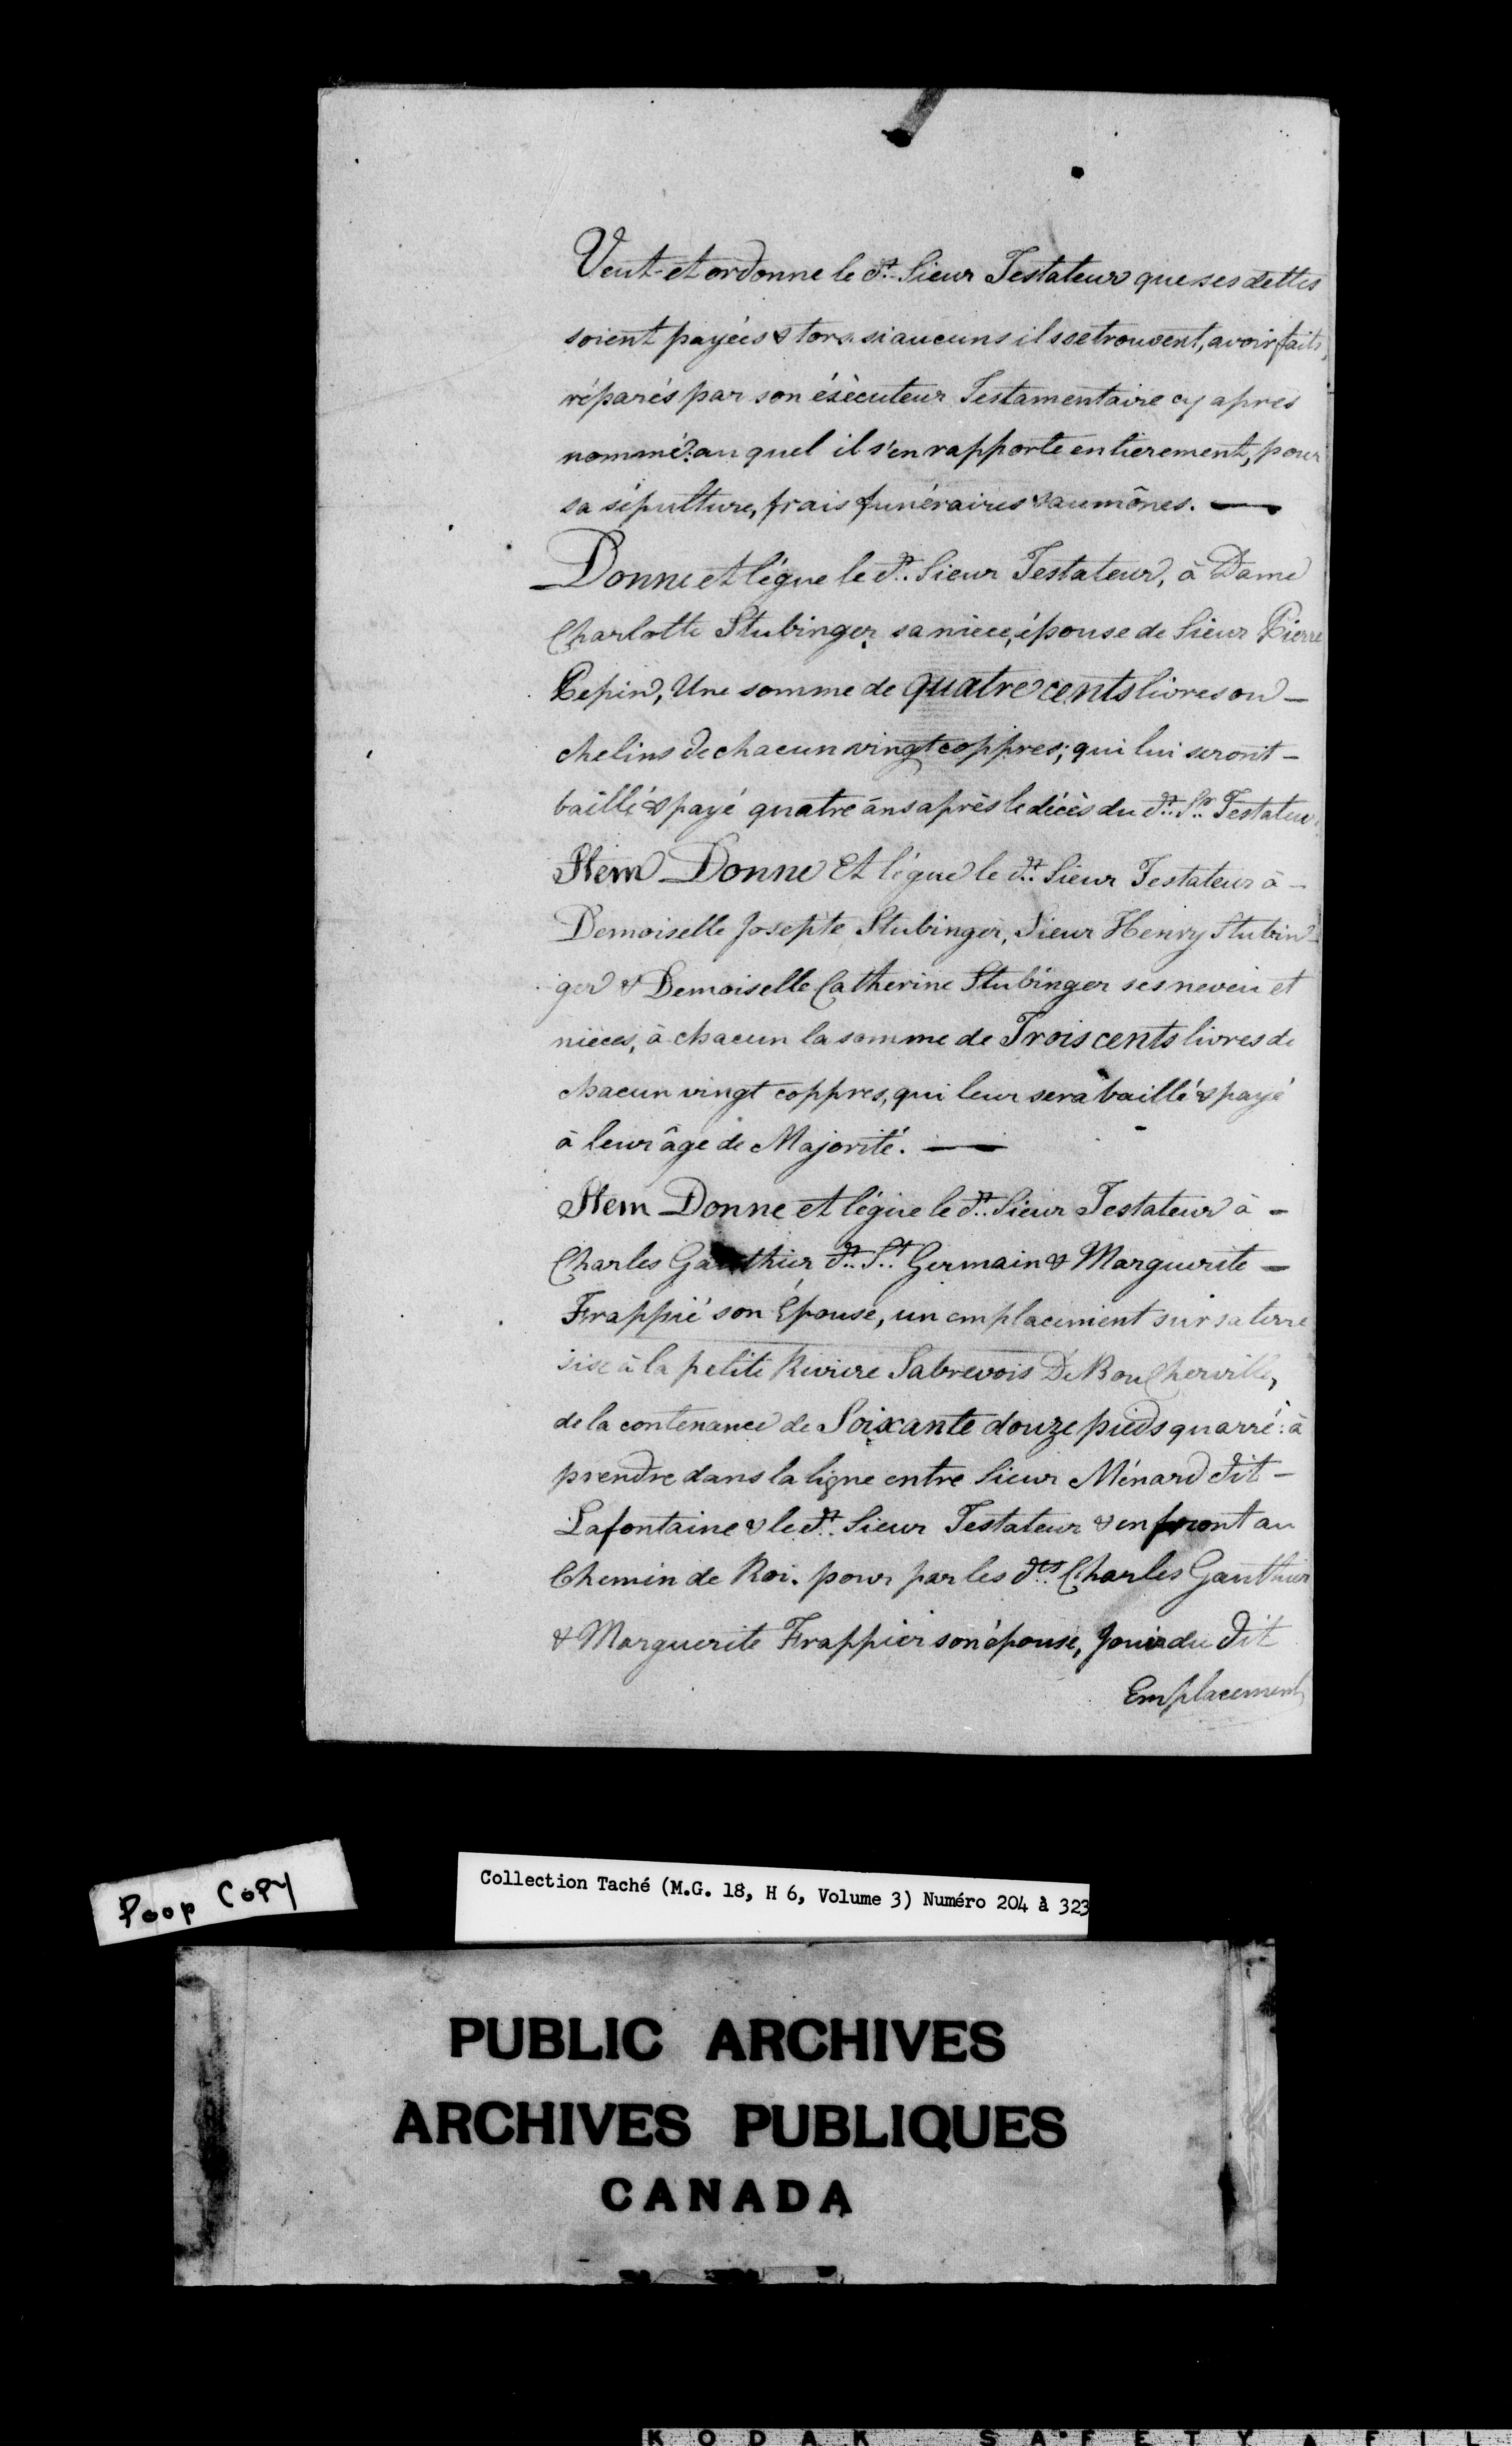 Veut et ordonne le dt. Sieur Testateur que ses dettes
soient payées & tors si aucuns il se trouvent, avoir faits,
réparés par son éxècuteur Testamentaire cy apres
nommé: au quel il s'en rapporte entierement, pour
sa sépulture, frais funéraires & aumônes. —
Donne et légue le dt. Sieur Testateur, à Dame
Charlotte Stubinger, sa niece, épouse de Sieur Pierre
Pepin, Une somme de quatre cents livres ou –
chelins de chacun vingt coppres; qui lui seront –
baillé & payé quatre ans après le décès du dt. Sr. Testateur
Item Donne Et légue le dt. Sieur Testateur à –
Demoiselle Josepte Stubinger, Sieur Henry Stubin-
ger & Demoiselle Catherine Stubinger ses neveu et
nièces, à chacun la somme de Trois cents livres de
chacun vingt coppres, qui leur sera baillé & payé
à leur âge de Majorité. —
Item Donne et légue le dt. Sieur Testateur à –
Charles Gauthier dt. St. Germain & Marguerite –
Frappié son Épouse, un emplacement sur sa terre
sise à la petite Riviere Sabrevois De Boucherville,
de la contenance de Soixante douze pieds quarré: à
prendre dans la ligne entre Sieur Ménard dit –
Lafontaine & le dt. Sieur Testateur & en front au
Chemin de Roi. pour par les dts. Charles Gauthier
& Marguerite Frappier son épouse, Jouir du dit
Emplacement
Poop COPY
Collection Taché (M.G. 18, H 6, Volume 3) Numéro 204 à 323
PUBLIC ARCHIVES
ARCHIVES PUBLIQUES
CANADA
KODAK SAFETY FIL